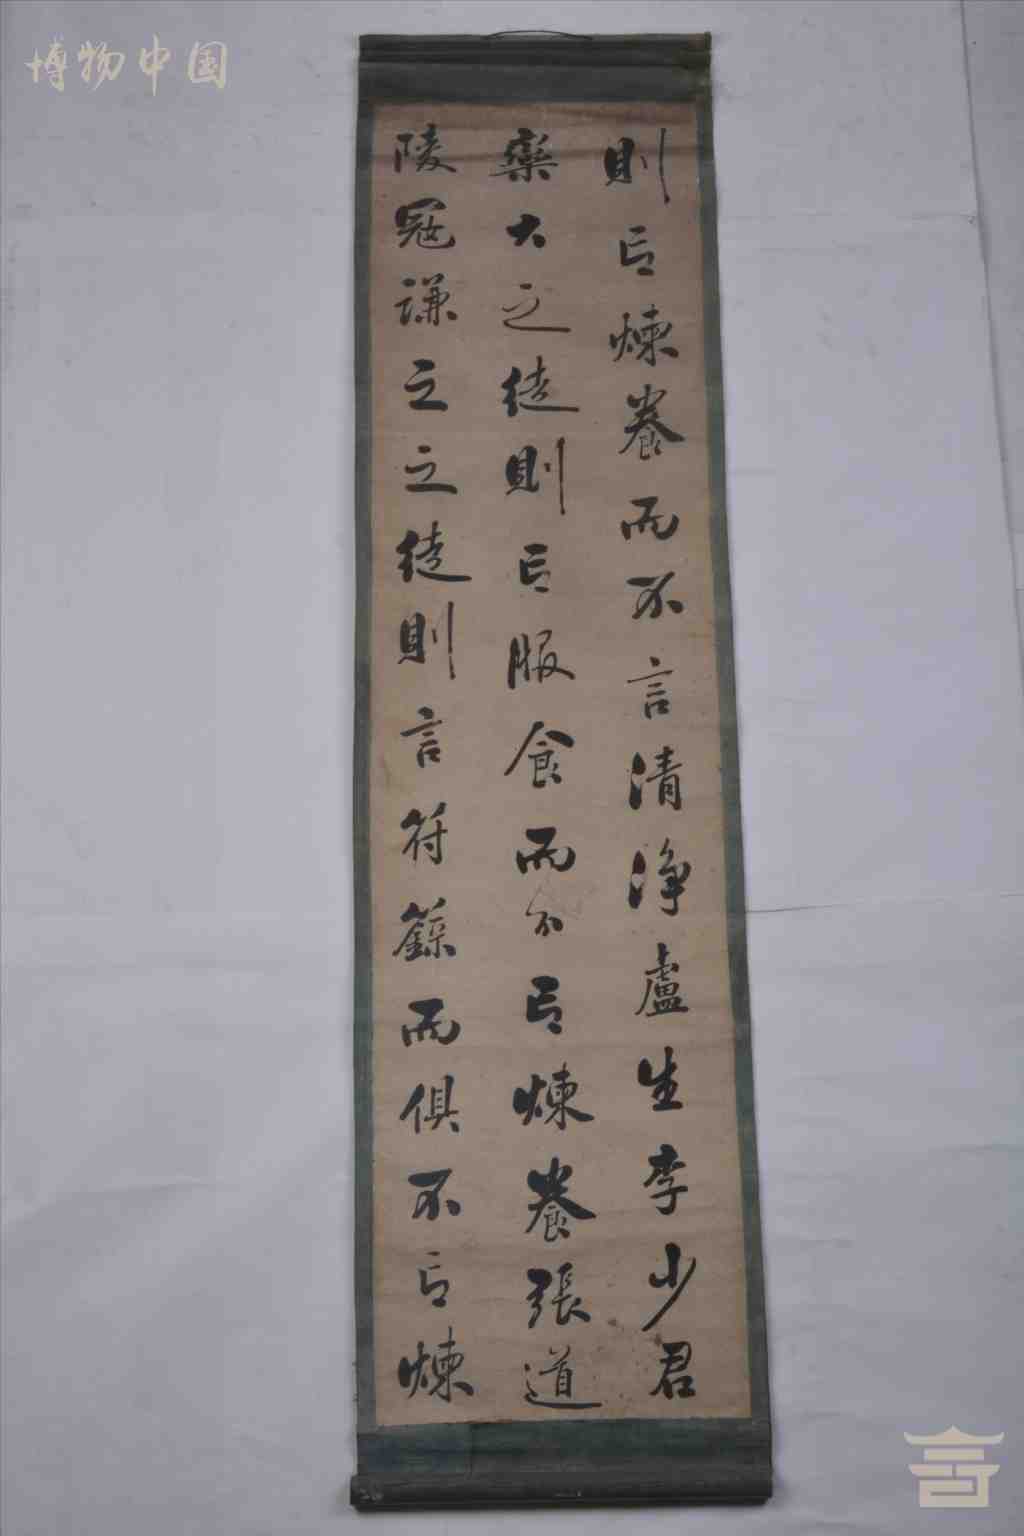 博物中国
則言煉養而不言清淨盧生李少君
欒大之徒則言服食而不言煉養張道
陵冠謙之之徒則言符籙而俱不言煉